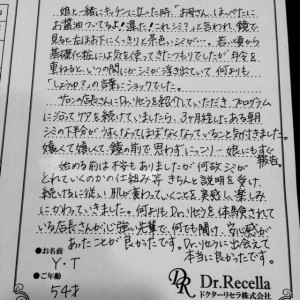 娘と一緒にキッチンに立った時、「お母さん、ほっぺたに
お醤油ついてるよ!違た!これシミ?」と言われ、鏡で
見ると、左ほお下にくっきりと茶色いシミが…。若い頃から
基礎化粧には気を使ってきたつもりでしたが、年令を
重ねると、いつの間にかシミが浮き出ていて、何よりも
「しょうゆ?」の言葉にショックでした。
サロンの店長さんにDr.リセラを紹介していただき、プログラム
に沿ってケアを続けていましたら、3ヶ月経ったある朝
シミの下半分がうすくなってほぼなくなっていること気付きました。
嬉しくて嬉しくて、鏡の前で思わずにっこりー 娘にもすぐ
報告。
始める前は不安もありましたが何故シミが
とれていくのかの仕組み等きちんと説明を受け、
続けるに従い肌が変わっていくことを実感し楽しみ
にかわっていきました。何よりもDr.リセラを体験されて
いる店長さんが心強い先輩で、何でも聞け、安心感が
あったことが良かったです。Dr.リセラに出会えて
本当に良かったです。
●お名前
Y.T
●ご年齢
54才
DR
Dr.Recella
ドクターリセラ株式会社